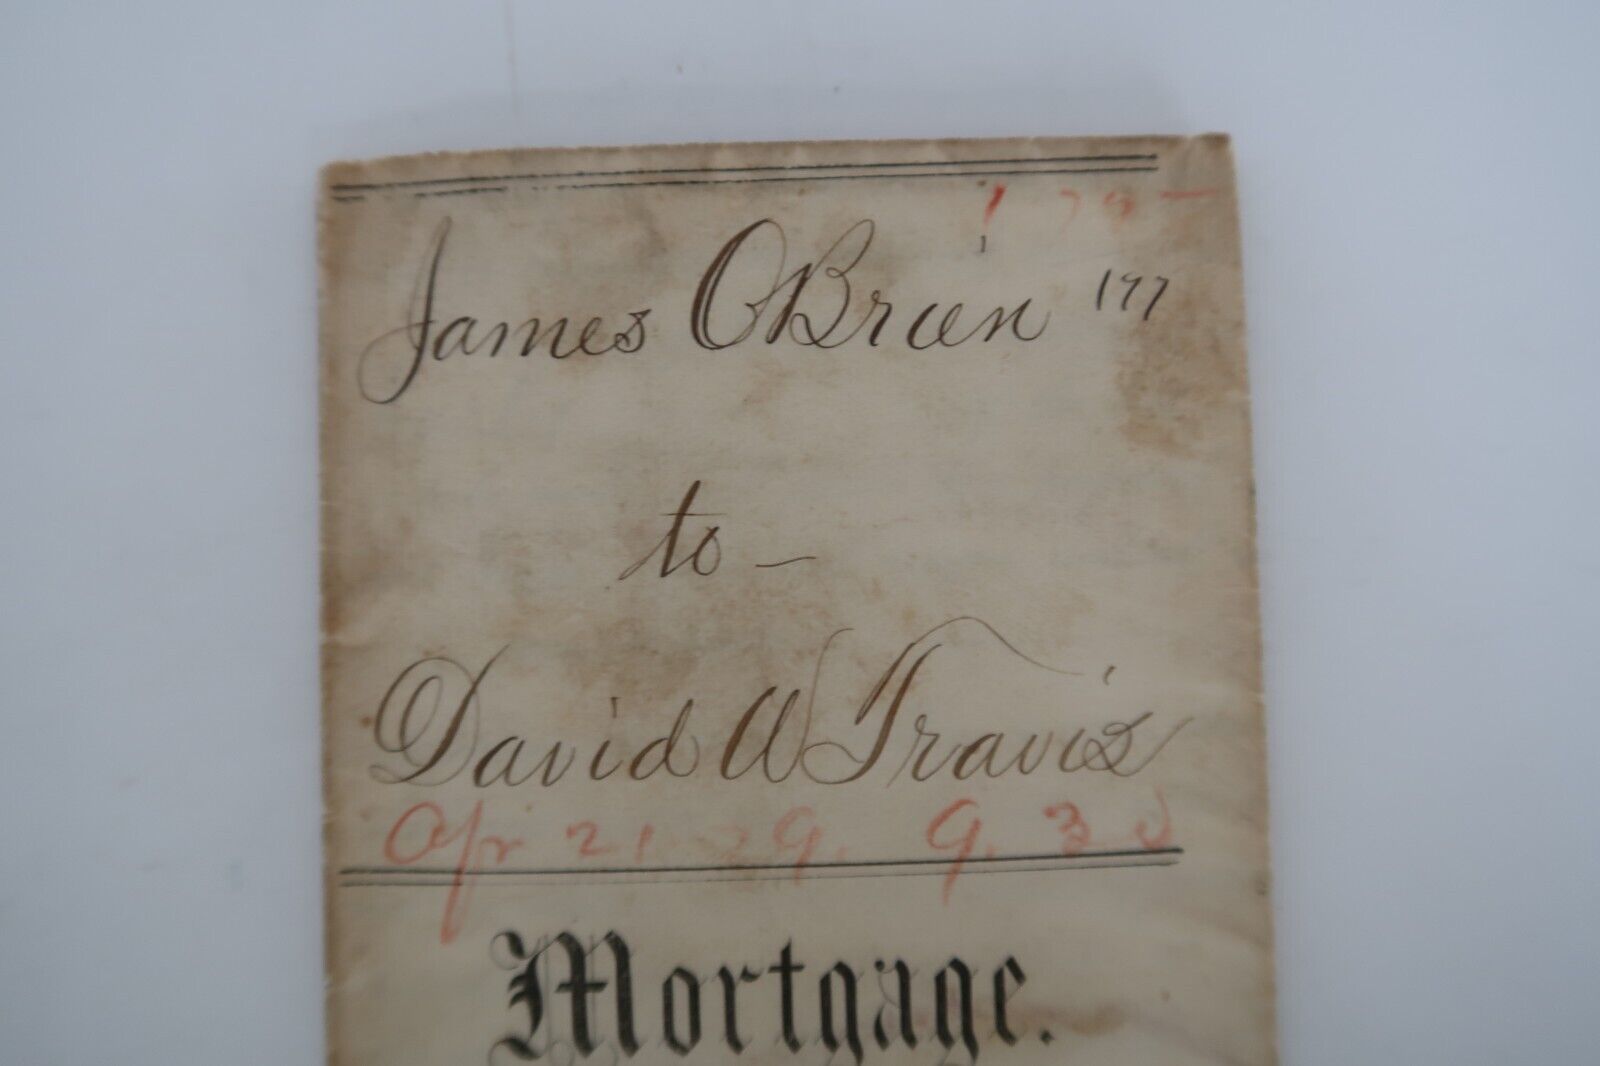 James OBrien 177
to —
David W Travis
Apr 21. 79. 9.30
Mortgage.